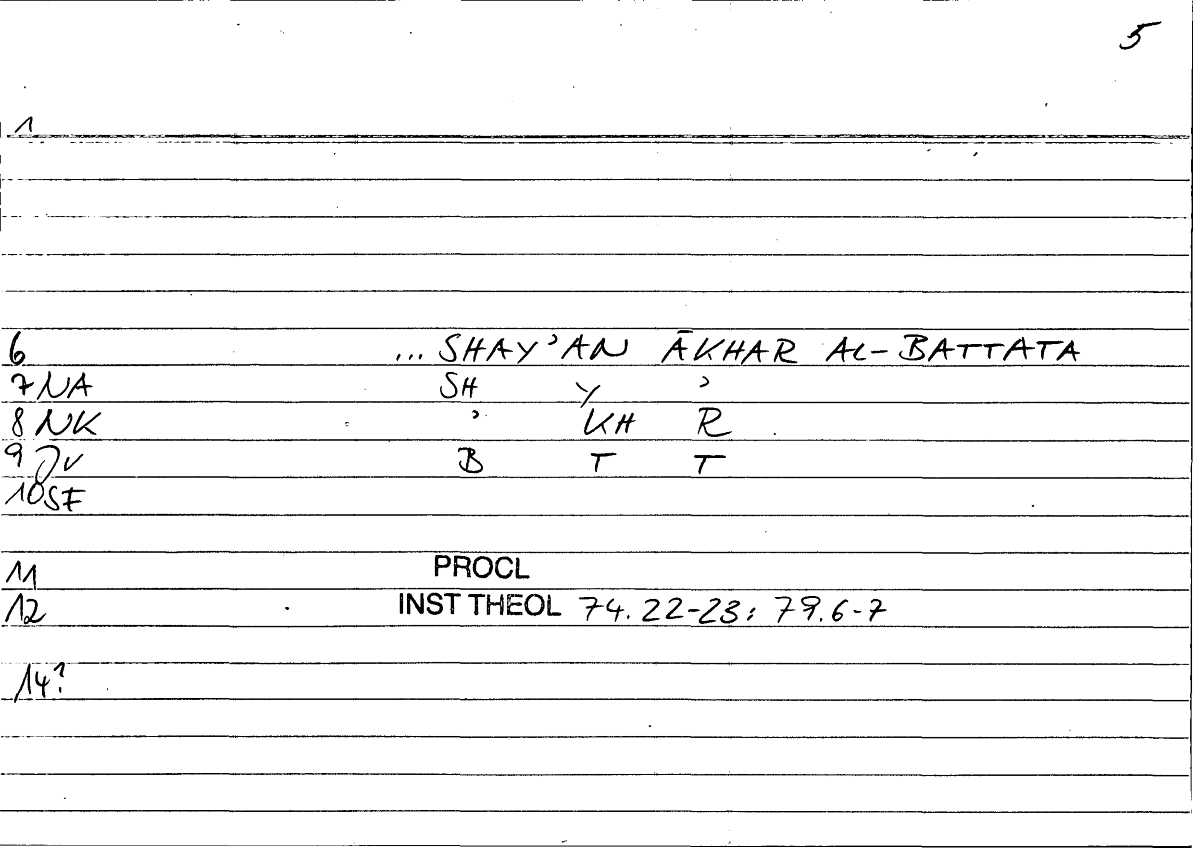 5
1
6 ... SHAY'AN ĀKHAR AL-BATTATA
7 NA SH Y '
8 NK ' KH R
9 JV B T T
10 SF
11 PROCL
12 INST THEOL 74.22-23: 79.6-7
14?